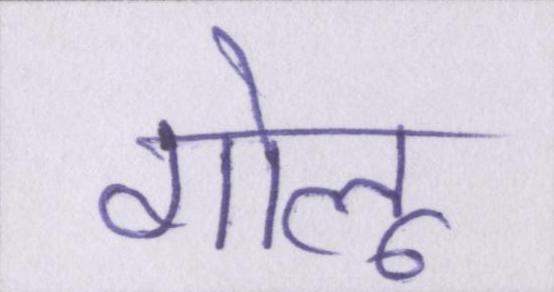 गोलू